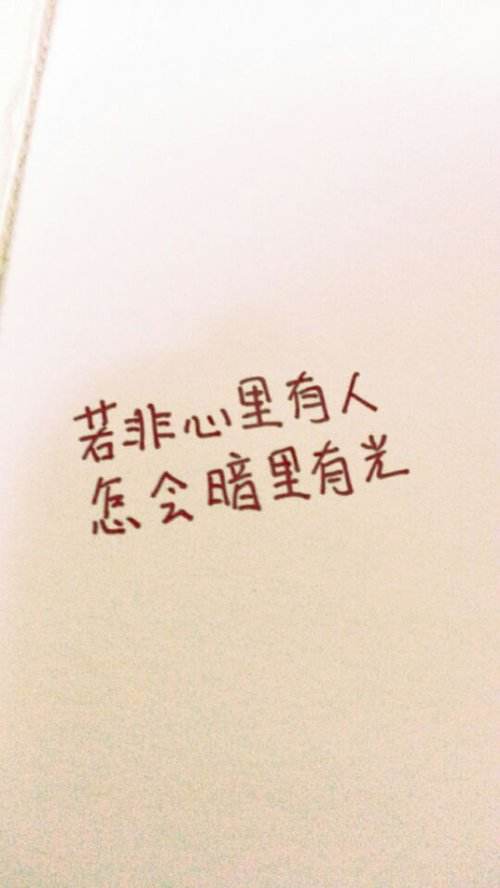 若非心里有人
怎会暗里有光